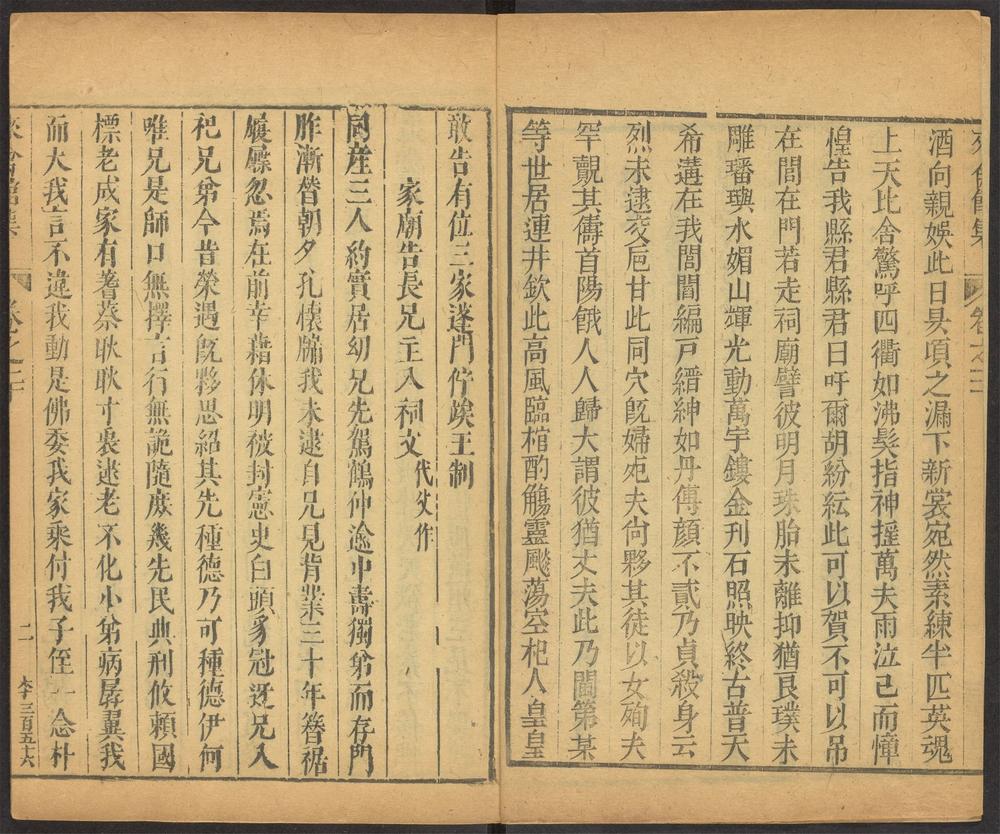 酒向親娛此日昃頃之漏下新裳宛然素練半匹英魂
上天比舍驚呼四衢如沸髮指神摧萬夫雨泣已而慞
惶告我縣君縣君曰吁爾胡紛紜此可以賀不可以吊
在閭在門若走祠廟譬彼明月珠胎未離抑猶艮璞未
雕璠璵水媚山輝光動萬宇鏤金刊石照映終古普天
希遘在我閭閻編戸縉紳如丹傅顔不貳乃貞殺身云
烈未逮交巵甘此同穴旣婦宛夫尙夥其徒以女殉夫
罕覯其儔首陽餓人人歸大謂彼猶丈夫此乃閨第某
等世居連井欽此高風臨棺酌觴靈颷蕩空杞人皇皇
敢告有位三家蓬門佇竢王制
家廟告長兄主入祠文代父作
同產三人約實居幼兄先駕鶴仲逾中壽獨弟而存門
胙漸替朝夕孔懷牖我未逮自兄見背業三十年簪裾
屐屩忽焉在前幸藉休明被封憲史白頭豸冠迓兄入
祀兄弟今昔榮遇旣夥思紹其先種德乃可種德伊何
唯兄是師口無擇言行無詭隨庶幾先民典刑攸賴國
標老成家有蓍蔡耿耿寸衷迷老不化小弟病孱翼我
而大我言不違我動是佛委我家乘付我子侄一念朴
卷之二十
二
三百五十六